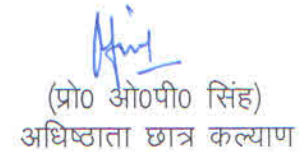 (प्रो0 ओ0पी0 सिंह)
अधिष्ठाता छात्र कल्याण